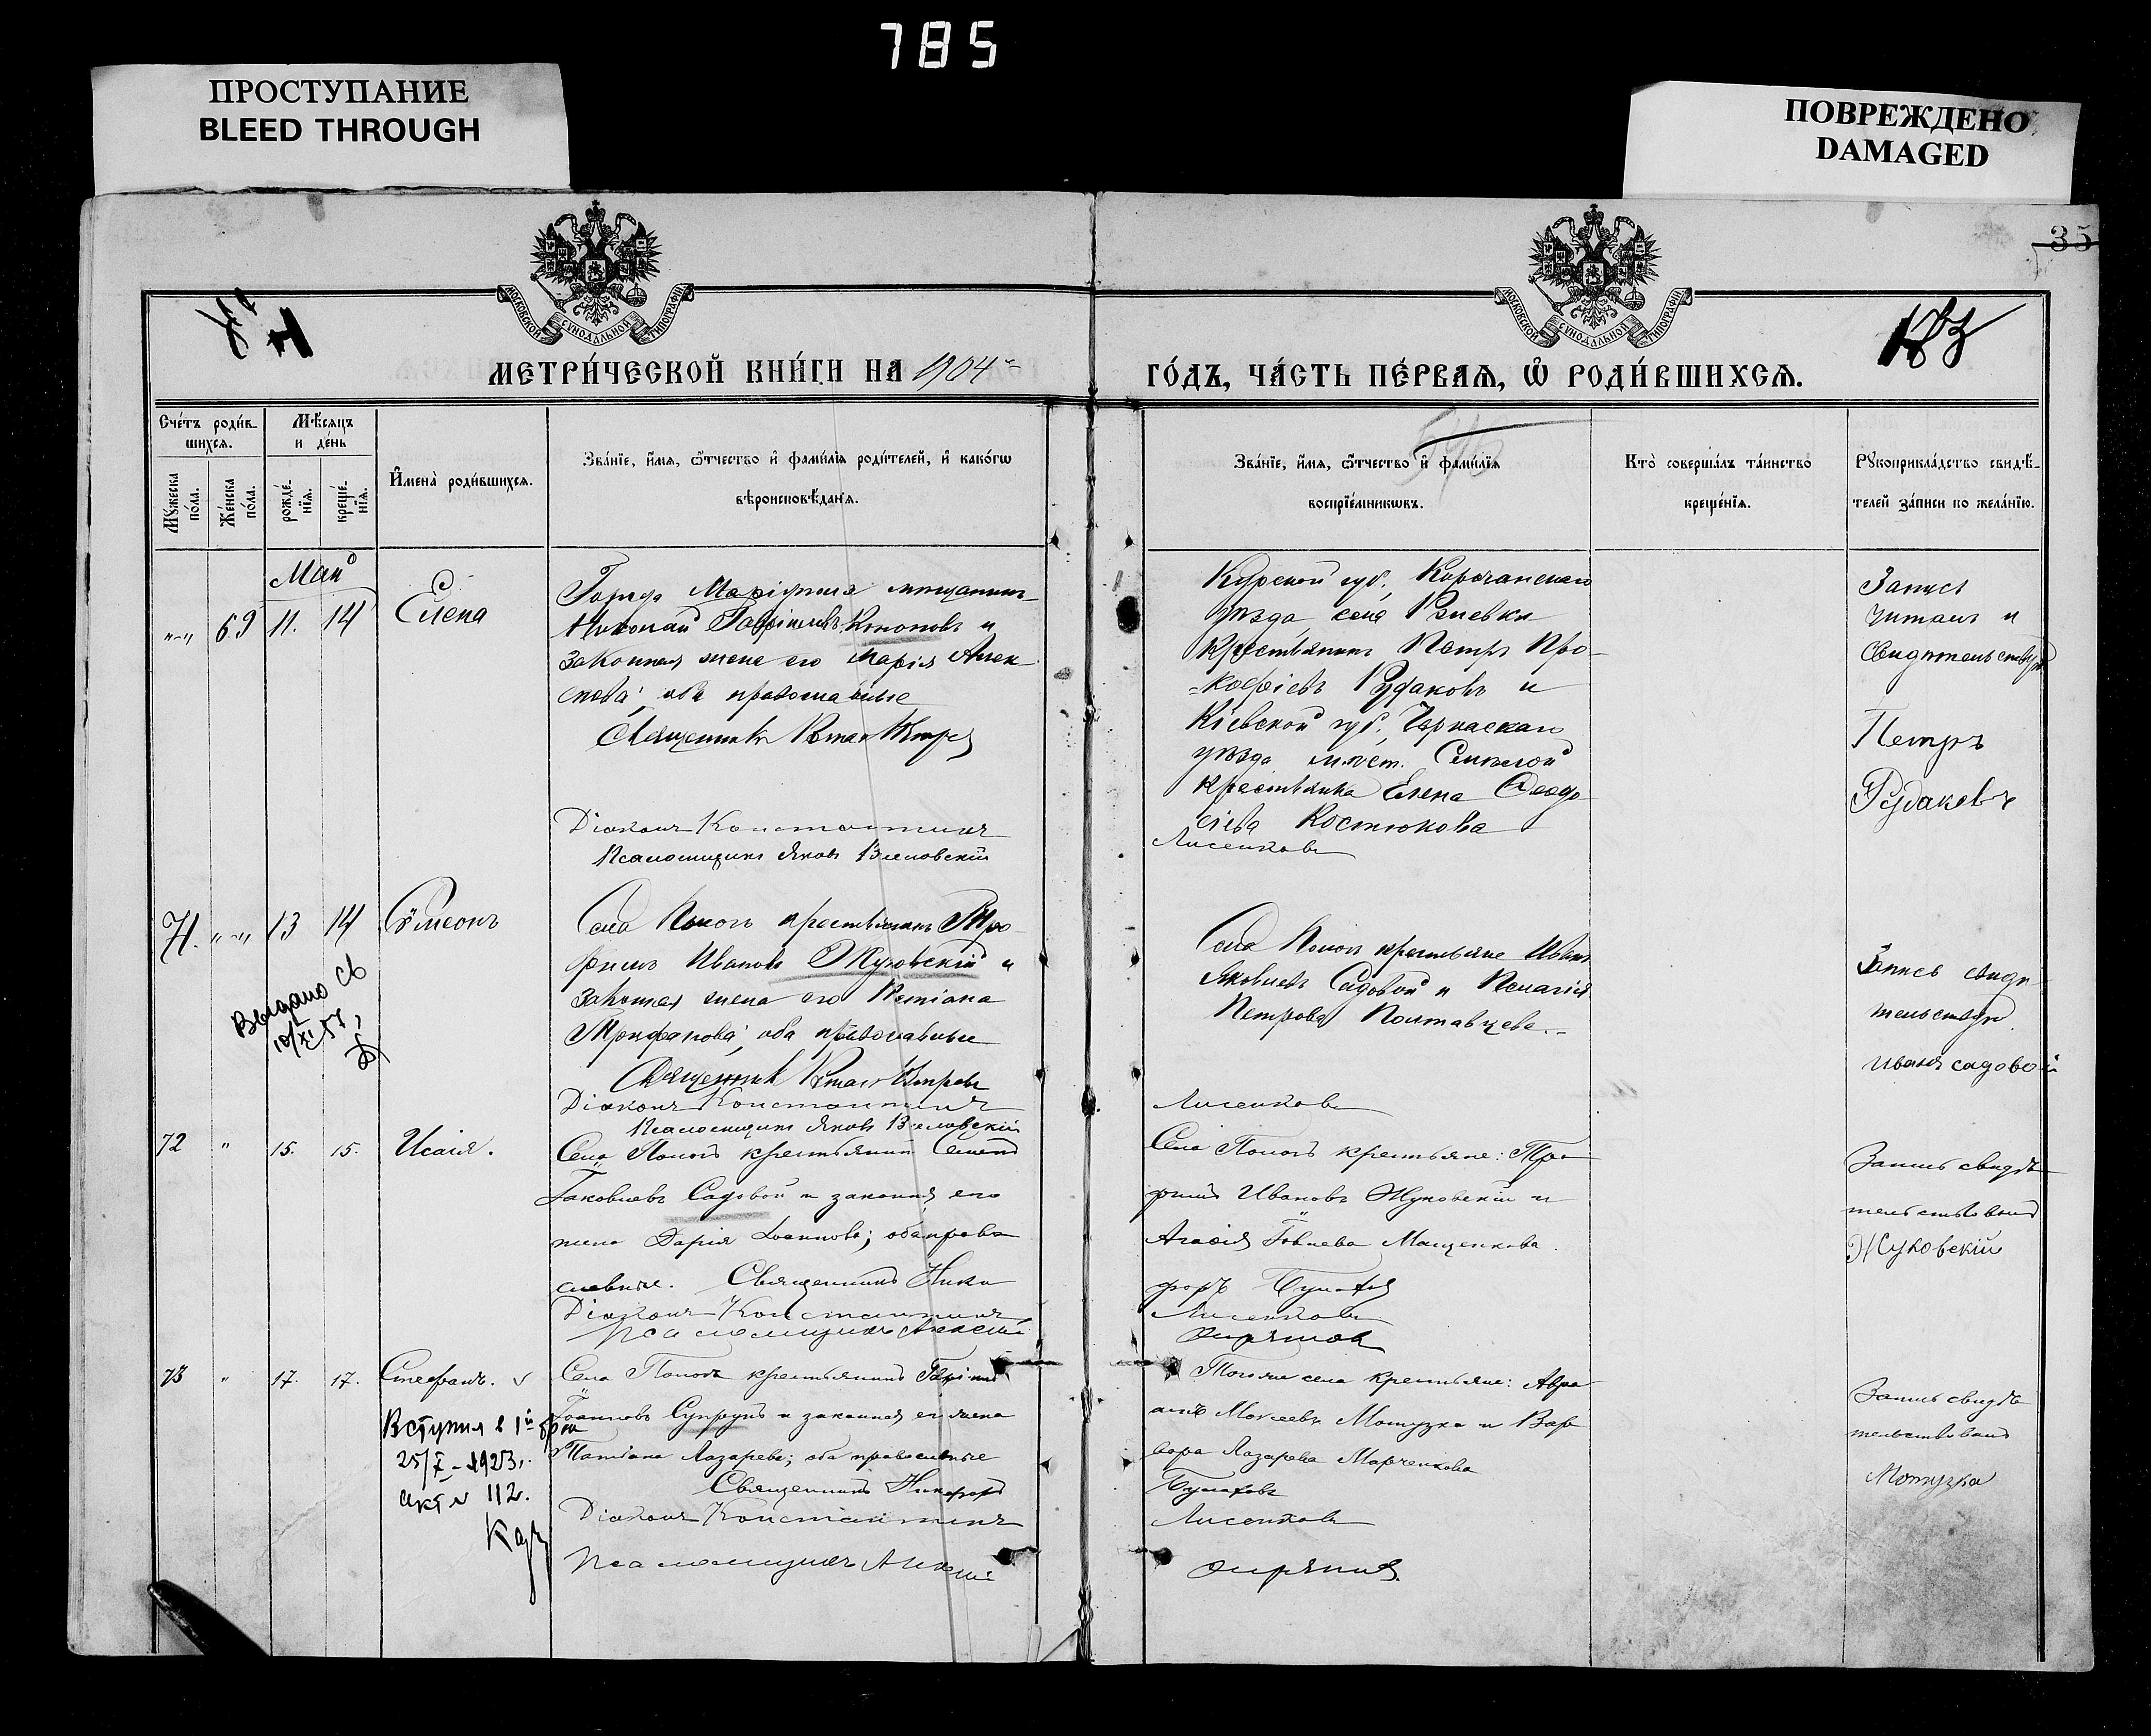 785
ПРОСТУПАНИЕ
BLEED THROUGH
ПОВРЕЖДЕНО
DAMAGED
35
МОСКОВСКОЙ СѴНОДАЛЬНОЙ ТИПОГРАФІИ
МОСКОВСКОЙ СѴНОДАЛЬНОЙ ТИПОГРАФІИ
МЕТРИ́ЧЕСКОЙ КНИ́ГИ НА 1904
ГО́ДЪ, ЧА́СТЬ ПЕ́РВАѦ, Ѡ РОДИ́ВШИХСѦ.
Сче́тъ роди́в-
шихсѧ.
Мѣ́сѧцъ
и де́нь
Мꙋ́жеска по́ла.
Же́нска по́ла.
рожде́-нїѧ.
креще́-нїѧ.
И҆мена̀ роди́вшихсѧ.
Зва́нїе, и҆́мѧ, ѻ҆́тчество и҆ фами́лїѧ роди́телей, и҆ како́гѡ
вѣроисповѣ́данїѧ.
Зва́нїе, и҆́мѧ, ѻ҆́тчество и҆ фами́лїѧ
воспрїе́мникѡвъ.
Кто̀ соверша́лъ та́инство
креще́нїѧ.
Рꙋкоприкла́дство свидѣ́-
телей за́писи по жела́нїю.
Май
69 11. 14 Елена
Города Маріуполя мѣщанинъ
Николай Гавріиловъ Кононовъ и
законная жена его Марія Алек
сѣева; оба православные
Священникъ
Діаконъ Константинъ
Псаломщикъ Яковъ
Курской губ., Корочанскаго
уѣзда, села
крестьянинъ Петръ Про-
-кофіевъ Рудаковъ и
Кіевской губ., Черкаскаго
уѣзда мѣст.
крестьянка Елена Ѳеодо
сіева Костюкова
Лисенковъ
Запись
читалъ и
свидѣтельствую
Петръ
Рудаковъ
71. 13 14 Сѵмеонъ
Села крестьянинъ Тро
фимъ Ивановъ Жуковскій и
законная жена его Татіана
Трифанова; оба православные
Священникъ
Діаконъ Константинъ
Псаломщикъ Яковъ
Села крестьяне Иванъ
Яковлевъ Садовой и Пелагія
Петрова Полтавцева.
Лисенковъ
Запись свидѣ
тельствую
иванъ садовой
Выдано св
10/XI 57,
72 " 15. 15. Исаія.
Села крестьянинъ Семенъ
Іаковлевъ Садовой и законная его
жена Дарія Іоаннова; оба право
славные. Священникъ Ники
Діаконъ Константинъ
Псаломщикъ Алексѣй
Села крестьяне: Тро
фимъ Ивановъ Жуковскій и
Агафія Іовлева Мащенкова.
форъ
Лисенковъ
Запись свидѣ
тельствовалъ
Жуковскій
73 " 17. 17. Стефанъ. v
Села крестьянинъ
Іоанновъ Супрунъ и законная его жена
Татіана Лазарева; оба православные
Священникъ Никифоръ
Діаконъ Константинъ
Псаломщикъ Алексѣй
Того же села крестьяне: Авра
амъ Моисеевъ Мотузка и Вар
вара Лазарева Марченкова
Лисенковъ
Запись свидѣ
тельствовалъ
Мотузка
Вступил в 1й брак
25/X - 1923 г.
акт № 112.